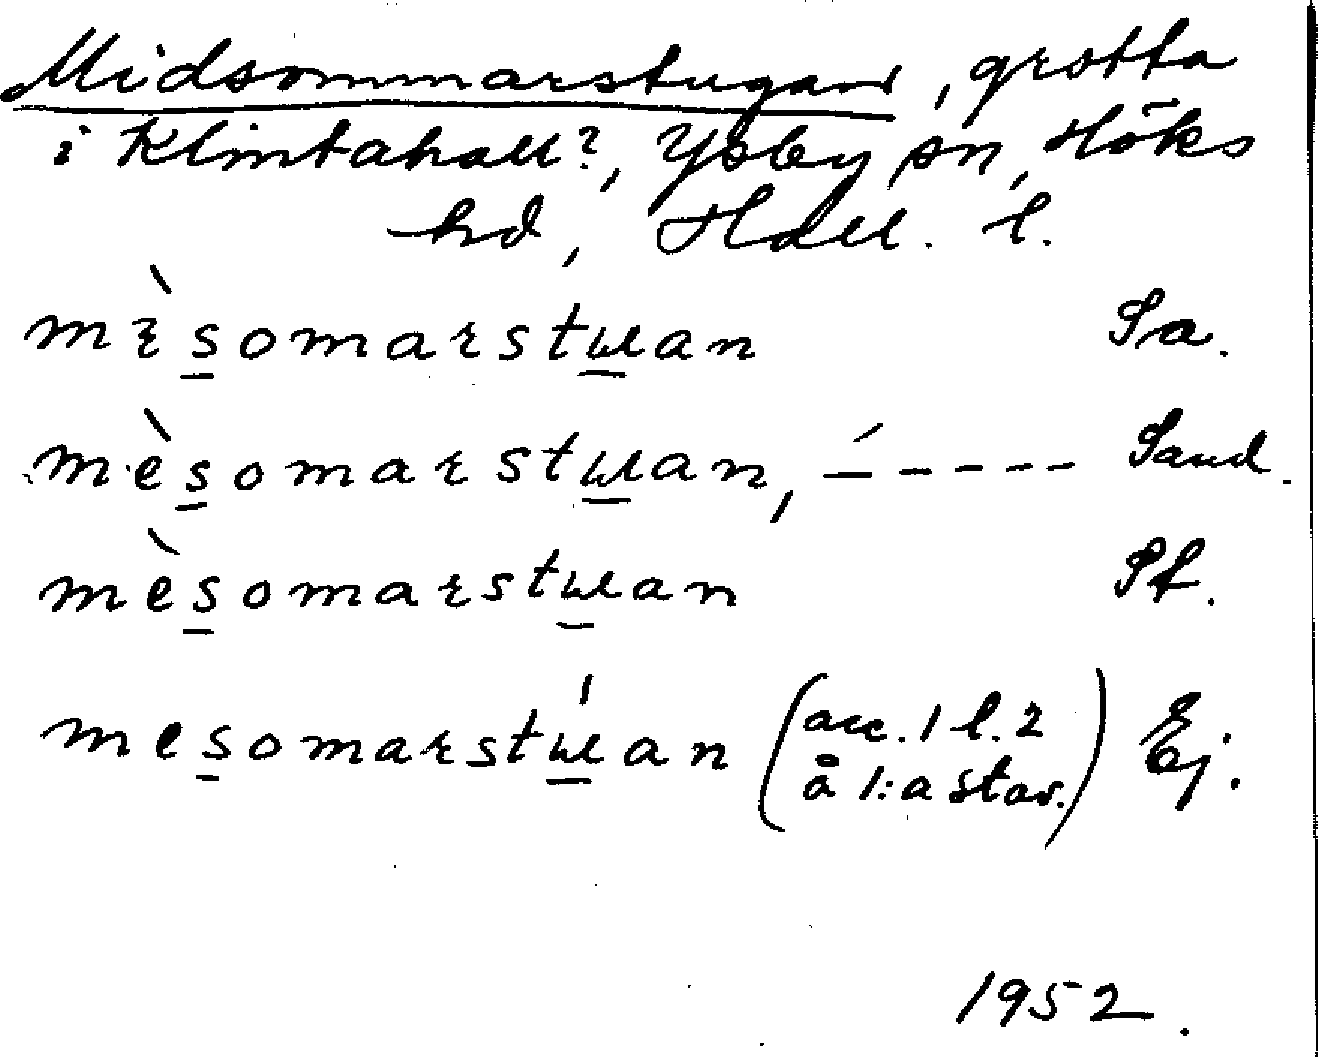 Midsommarstugan, grotta
i Klintahall?, Ysby sn, Höks
hd, Hall. l.
mìsomarstuan Sa.
mèsomarstuan, – – – – – Sand.
mèsomarstuan Pf.
mesomarstúan (acc. 1 l. 2 å 1:a stav.) Ej.
1952.